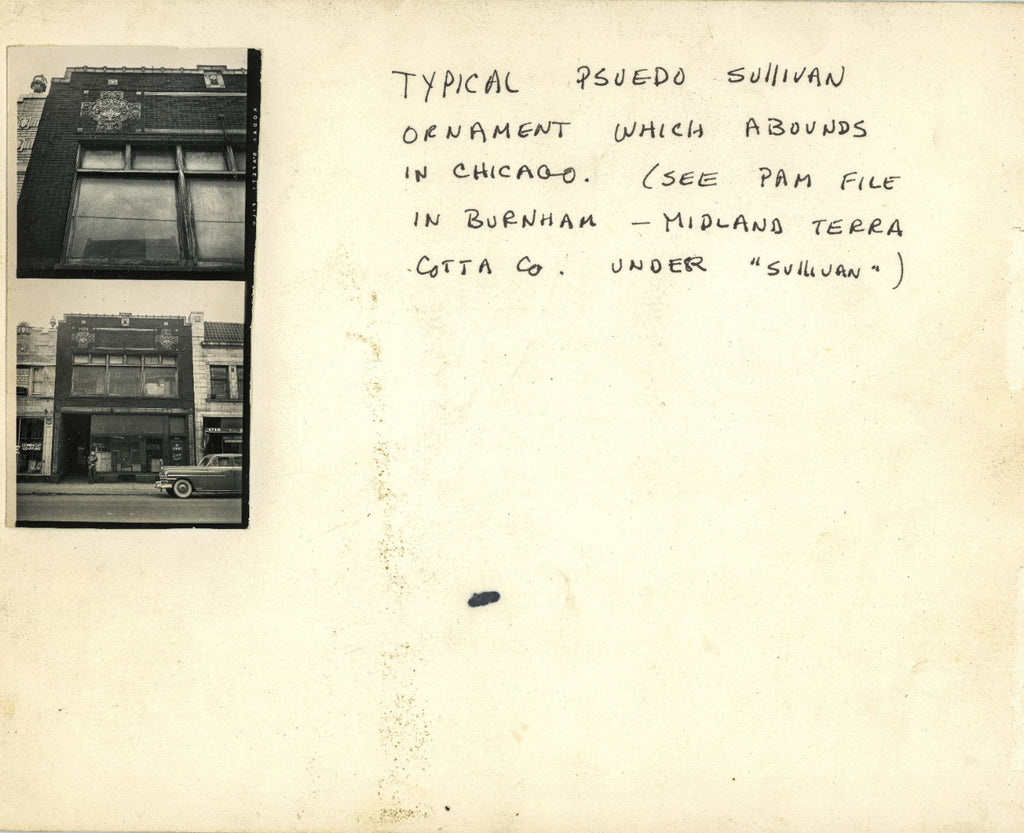 TYPICAL PSUEDO SULLIVAN
ORNAMENT WHICH ABOUNDS
IN CHICAGO. (SEE PAM FILE
IN BURNHAM – MIDLAND TERRA
COTTA CO. UNDER "SULLIVAN")